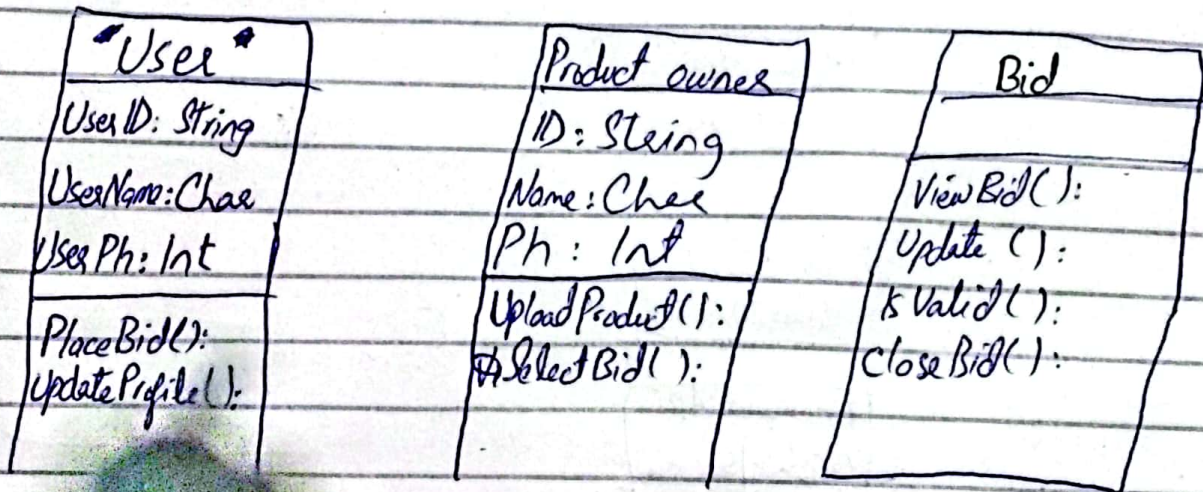 "User"
UserID: String
UserName: Char
UserPh: Int
PlaceBid():
UpdateProfile():
Product owner
ID: String
Name: Char
Ph: Int
UploadProduct():
SelectBid():
Bid
ViewBid():
Update():
isValid():
CloseBid():